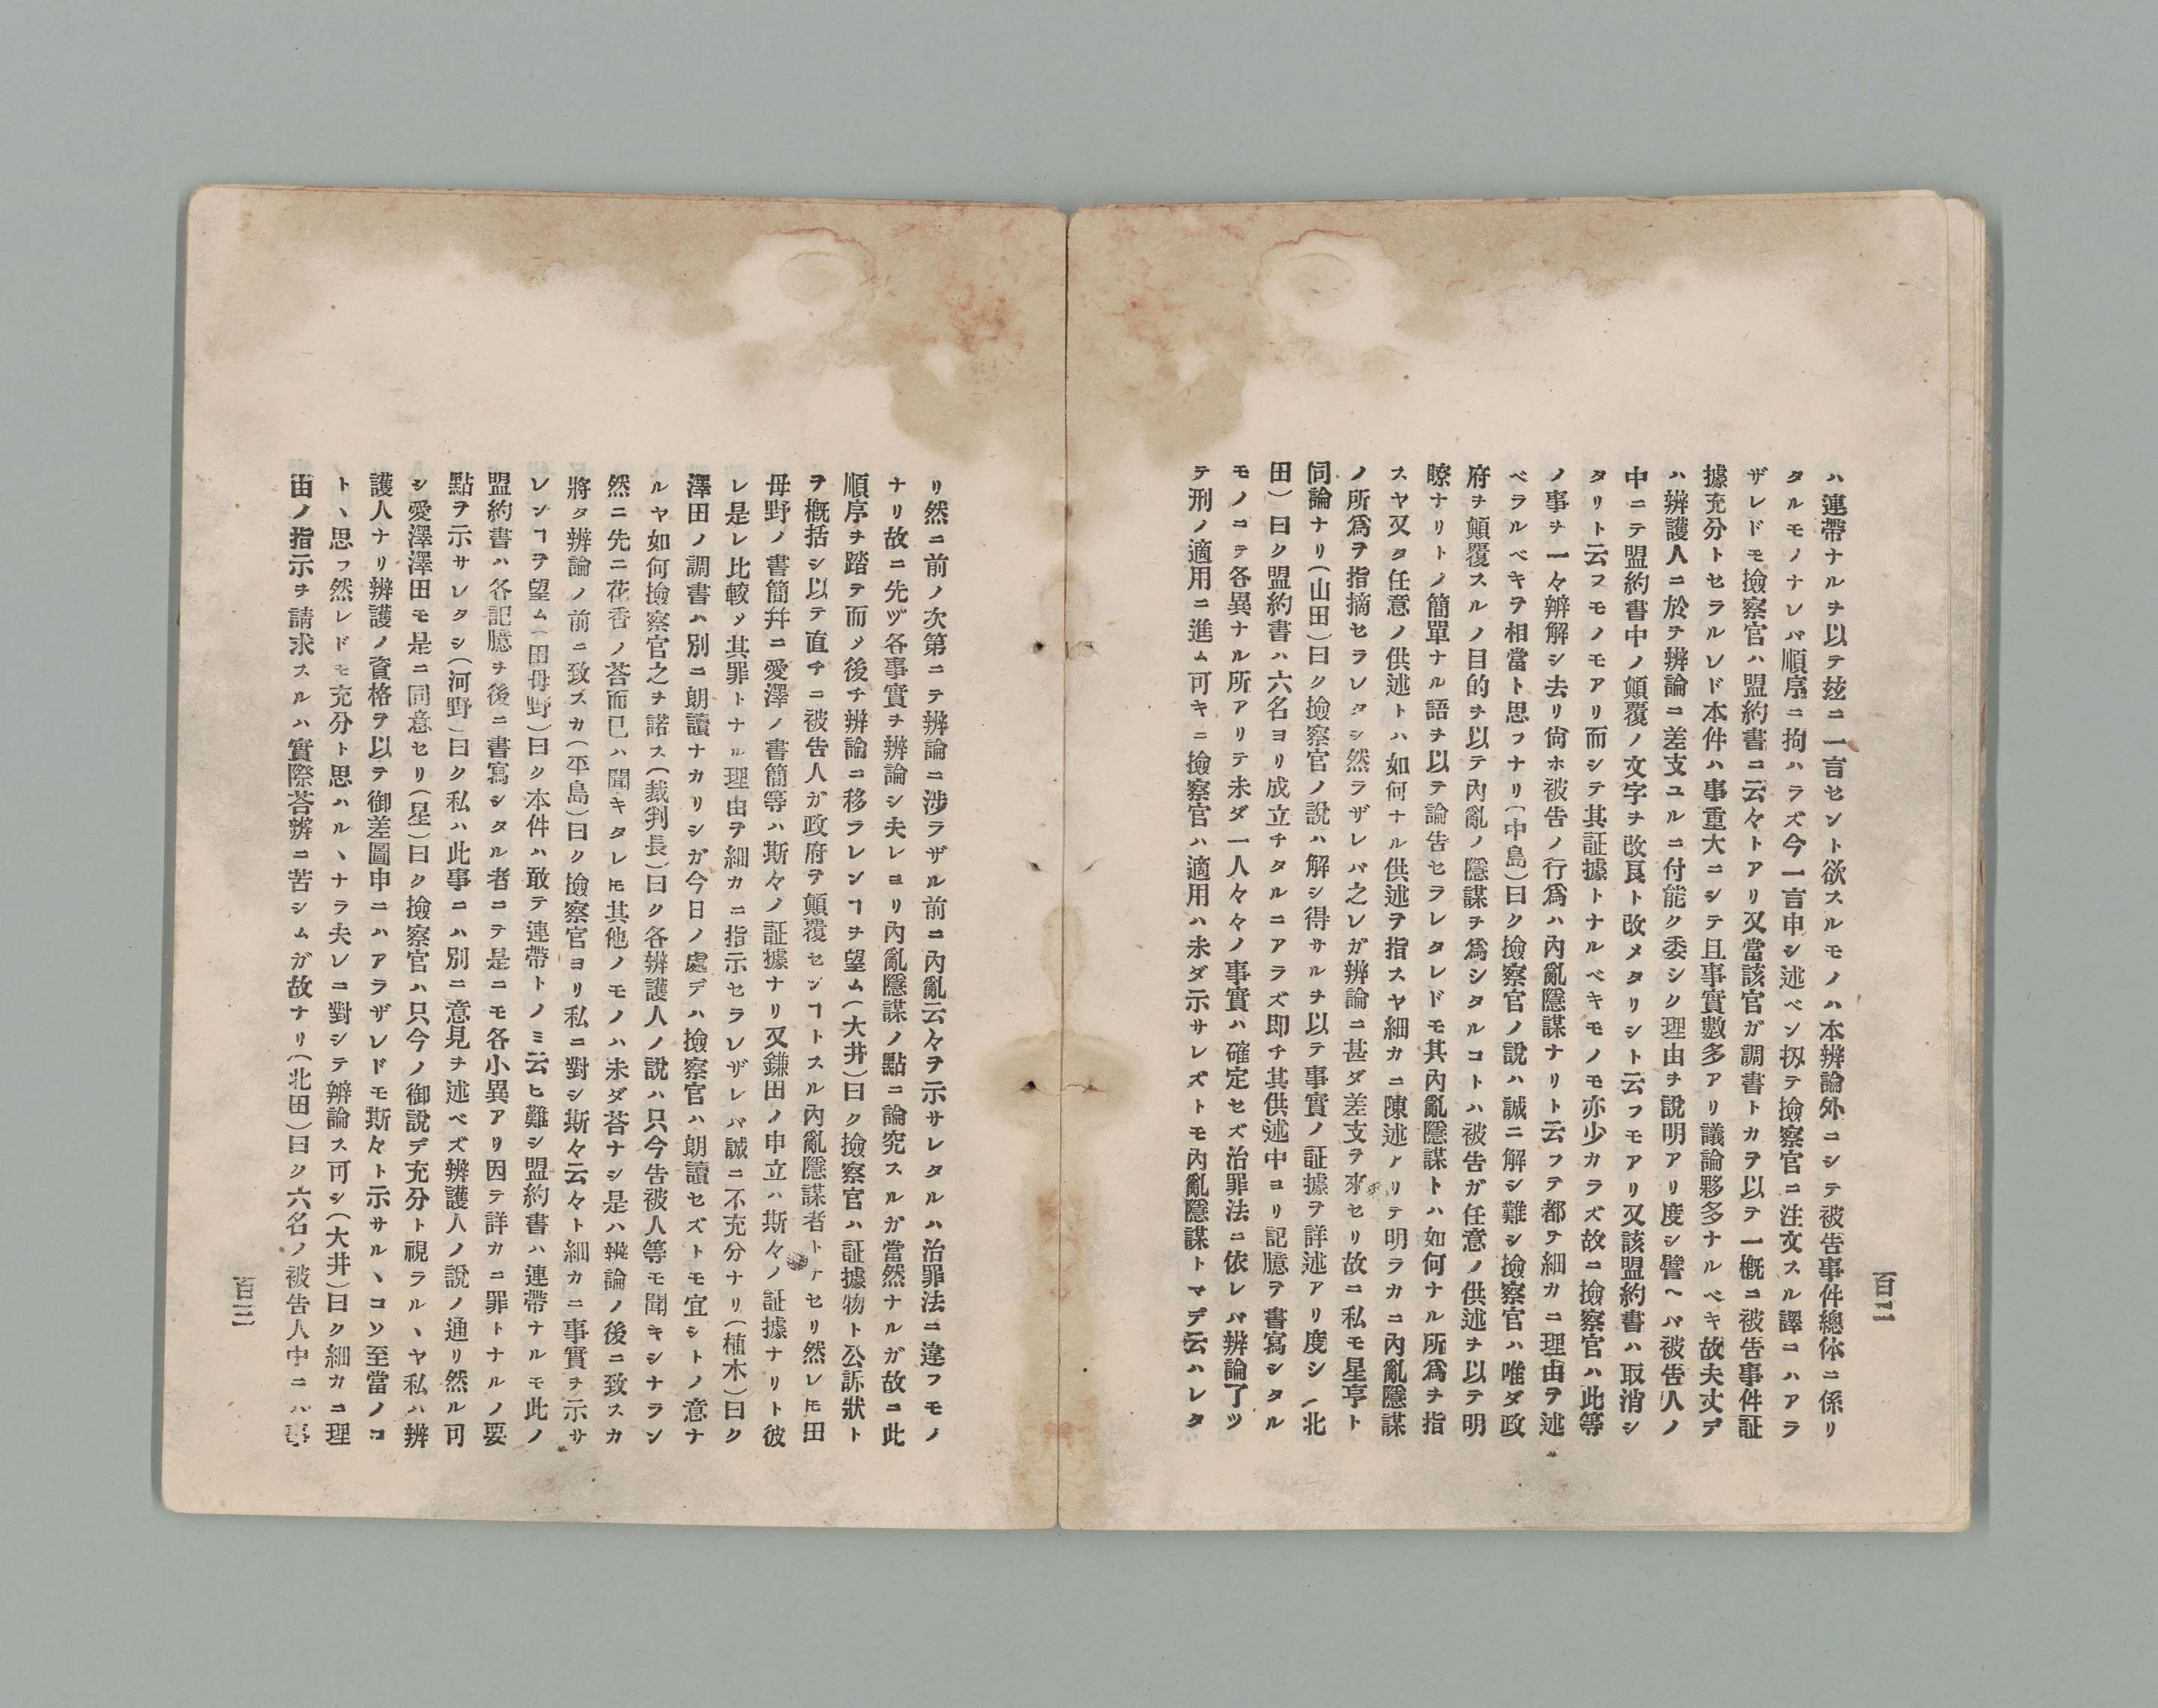 百二
ハ連帶ナルヲ以テ玆ニ一言セント欲スルモノハ本辨論外ニシテ被告事件總体ニ係リ
タルモノナレバ順序ニ拘ハラズ今一言申シ述ベン扨テ撿察官ニ注文スル譯ニハアラ
ザレドモ撿察官ハ盟約書ニ云々トアリ又當該官ガ調書トカヲ以テ一概ニ被告事件証
據充分トセラルレド本件ハ事重大ニシテ且事實數多アリ議論夥多ナルベキ故夫丈デ
ハ辨護人ニ於テ辨論ニ差支ユルニ付能ク委シク理由ヲ說明アリ度シ譬ヘバ被告人ノ
中ニテ盟約書中ノ顛覆ノ文字ヲ改良ト改メタリシト云フモアリ又該盟約書ハ取消シ
タリト云フモノモアリ而シテ其証據トナルベキモノモ亦少カラズ故ニ撿察官ハ此等
ノ事ヲ一々辨解シ去リ尙ホ被告ノ行爲ハ內亂隱謀ナリト云フテ都テ細カニ理由ヲ述
ベラルベキヲ相當ト思フナリ(中島)曰ク撿察官ノ說ハ誠ニ解シ難シ撿察官ハ唯ダ政
府ヲ顛覆スルノ目的ヲ以テ內亂ノ隱謀ヲ爲シタルコトハ被告ガ任意ノ供述ヲ以テ明
瞭ナリトノ簡單ナル語ヲ以テ論告セラレタレドモ其內亂隱謀トハ如何ナル所爲ヲ指
スヤ又タ任意ノ供述トハ如何ナル供述ヲ指スヤ細カニ陳述アリテ明ラカニ內亂隱謀
ノ所爲ヲ指摘セラレタシ然ラザレバ之レガ辨論ニ甚ダ差支ヲ來セリ故ニ私モ星亨ト
同論ナリ(山田)曰ク撿察官ノ說ハ解シ得サルヲ以テ事實ノ証據ヲ詳述アリ度シ(北
田)曰ク盟約書ハ六名ヨリ成立チタルニアラズ即チ其供述中ヨリ記臆ヲ書寫シタル
モノニテ各異ナル所アリテ未ダ一人々々ノ事實ハ確定セズ治罪法ニ依レバ辨論了ツ
テ刑ノ適用ニ進ム可キニ撿察官ハ適用ハ未ダ示サレズトモ內亂隱謀トマデ云ハレタ
リ然ニ前ノ次第ニテ辨論ニ涉ラザル前ニ內亂云々ヲ示サレタルハ治罪法ニ違フモノ
ナリ故ニ先ヅ各事實ヲ辨論シ夫レヨリ內亂隱謀ノ點ニ論究スルガ當然ナルガ故ニ此
順序ヲ踏テ而〆後チ辨論ニ移ラレンヿヲ望ム(大井)曰ク撿察官ハ証據物ト公訴狀ト
ヲ概括シ以テ直チニ被告人ガ政府ヲ顛覆センヿトスル內亂隱謀者トナセリ然レ𪜈田
母野ノ書簡幷ニ愛澤ノ書簡等ハ斯々ノ証據ナリ又鎌田ノ申立ハ斯々ノ証據ナリト彼
レ是レ比較〆其罪トナル理由ヲ細カニ指示セラレザレバ誠ニ不充分ナリ(植木)曰ク
澤田ノ調書ハ別ニ朗讀ナカリシガ今日ノ處デハ撿察官ハ朗讀セズトモ宜シトノ意ナ
ルヤ如何撿察官之ヲ諾ス(裁判長)曰ク各辨護人ノ說ハ只今告被人等モ聞キシナラン
然ニ先ニ花香ノ荅而已ハ聞キタレ𪜈其他ノモノハ未ダ荅ナシ是ハ辨論ノ後ニ致スカ
將タ辨論ノ前ニ致ズカ(平島)曰ク撿察官ヨリ私ニ對シ斯々云々ト細カニ事實ヲ示サ
レンヿヲ望ム(田母野)曰ク本件ハ敢テ連帶トノミ云ヒ難シ盟約書ハ連帶ナルモ此ノ
盟約書ハ各記臆ヲ後ニ書寫シタル者ニテ是ニモ各小異アリ因テ詳カニ罪トナルノ要
點ヲ示サレタシ(河野)曰ク私ハ此事ニハ別ニ意見ヲ述ベズ辨護人ノ說ノ通リ然ル可
シ愛澤澤田モ是ニ同意セリ(星)曰ク撿察官ハ只今ノ御說デ充分ト視ラルヽヤ私ハ辨
護人ナリ辨護ノ資格ヲ以テ御差圖申ニハアラザレドモ斯々ト示サルヽコソ至當ノコ
トヽ思フ然レドモ充分ト思ハルヽナラ夫レニ對シテ辨論ス可シ(大井)曰ク細カニ理
由ノ指示ヲ請求スルハ實際荅辨ニ苦シムガ故ナリ(北田)曰ク六名ノ被告人中ニハ事
百三